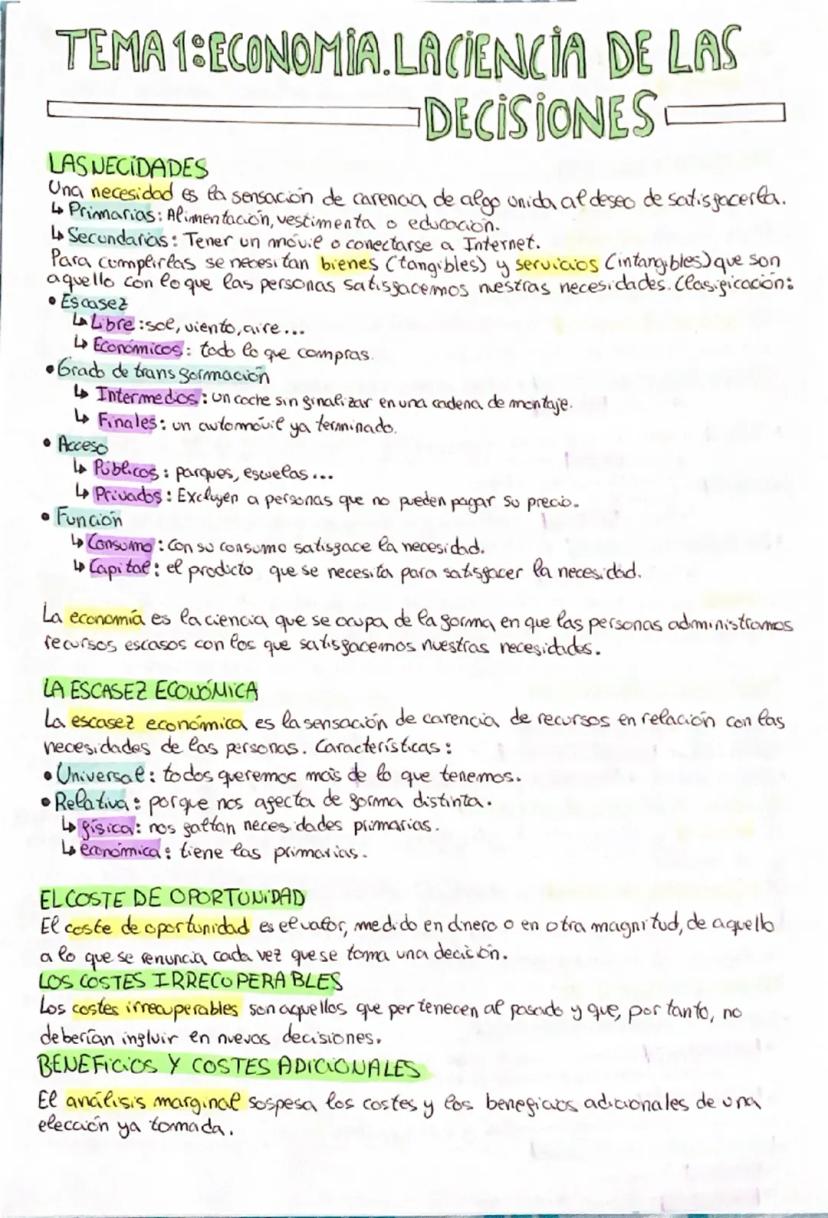 TEMA 1: ECONOMÍA. LA CIENCIA DE LAS
DECISIONES
LAS NECIDADES
Una necesidad es la sensación de carencia de algo unida al deseo de satisfacerla.
↳ Primarias: Alimentación, vestimenta o educación.
↳ Secundarias: Tener un móvil o conectarse a Internet.
Para cumplirlas se necesitan bienes (tangibles) y servicios (intangibles) que son
aquello con lo que las personas satisfacemos nuestras necesidades. Clasificación:
• Escasez
↳ Libre: sol, viento, aire...
↳ Económicos: todo lo que compras.
• Grado de transformación
↳ Intermedios: un coche sin finalizar en una cadena de montaje.
↳ Finales: un automóvil ya terminado.
• Acceso
↳ Públicos: parques, escuelas...
↳ Privados: Excluyen a personas que no pueden pagar su precio.
• Función
↳ Consumo: con su consumo satisface la necesidad.
↳ Capital: el producto que se necesita para satisfacer la necesidad.
La economía es la ciencia que se ocupa de la forma en que las personas administramos
recursos escasos con los que satisfacemos nuestras necesidades.
LA ESCASEZ ECONÓMICA
La escasez económica es la sensación de carencia de recursos en relación con las
necesidades de las personas. Características:
• Universal: todos queremos más de lo que tenemos.
• Relativa: porque nos afecta de forma distinta.
↳ física: nos faltan necesidades primarias.
↳ económica: tiene las primarias.
EL COSTE DE OPORTUNIDAD
El coste de oportunidad es el valor, medido en dinero o en otra magnitud, de aquello
a lo que se renuncia cada vez que se toma una decisión.
LOS COSTES IRRECOPERABLES
Los costes irrecuperables son aquellos que pertenecen al pasado y que, por tanto, no
deberían influir en nuevas decisiones.
BENEFICIOS Y COSTES ADICIONALES
El análisis marginal sospesa los costes y los beneficios adicionales de una
elección ya tomada.